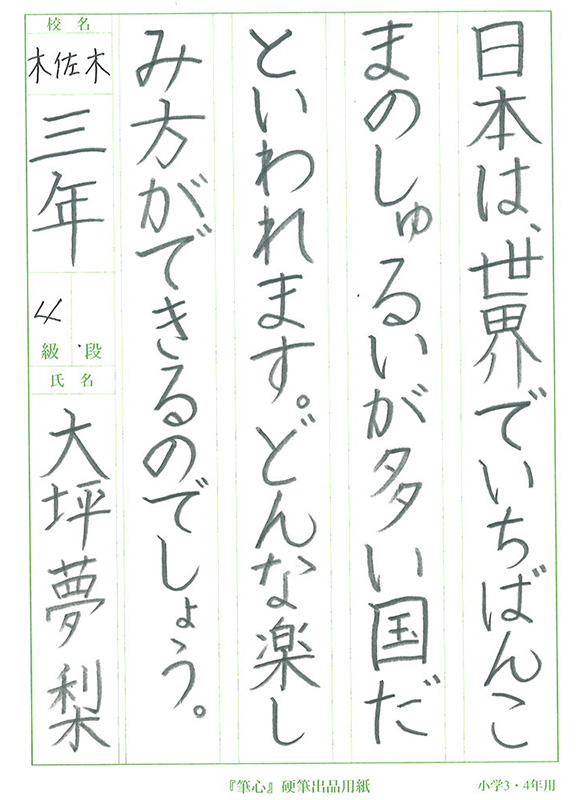 日本は、世界でいちばんこ
まのしゅるいが多い国だ
といわれます。どんな楽し
み方ができるのでしょう。
校名
木佐木
三年
級段
氏名
大坪夢梨
『筆心』硬筆出品用紙
小学3・4年用